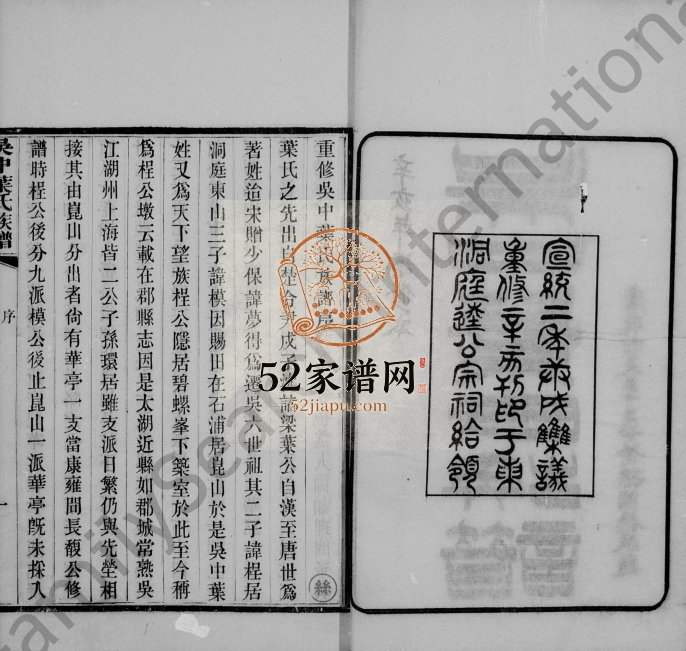 宣統二年庚戌集議
重修辛亥刊印于東
洞庭逵公宗祠給領
重修吳中葉氏族譜序
葉氏之先出自楚令尹戌子諸梁葉公自漢至唐世爲
著姓迨宋贈少保諱夢得爲遷吳六世祖其二子諱桯居
洞庭東山三子諱模因賜田在石浦居崑山於是吳中葉
姓又爲天下望族桯公隱居碧螺峯下築室於此至今稱
爲桯公墩云載在郡縣志因是太湖近縣如郡城常熟吳
江湖州上海皆二公子孫環居雖支派日繁仍與先塋相
接其由崑山分出者尙有華亭一支當康雍間長馥公修
譜時桯公後分九派模公後止崑山一派華亭旣未採入
吳中葉氏族譜
序
一
52家谱网
52jiapu.com
FamilySearch International